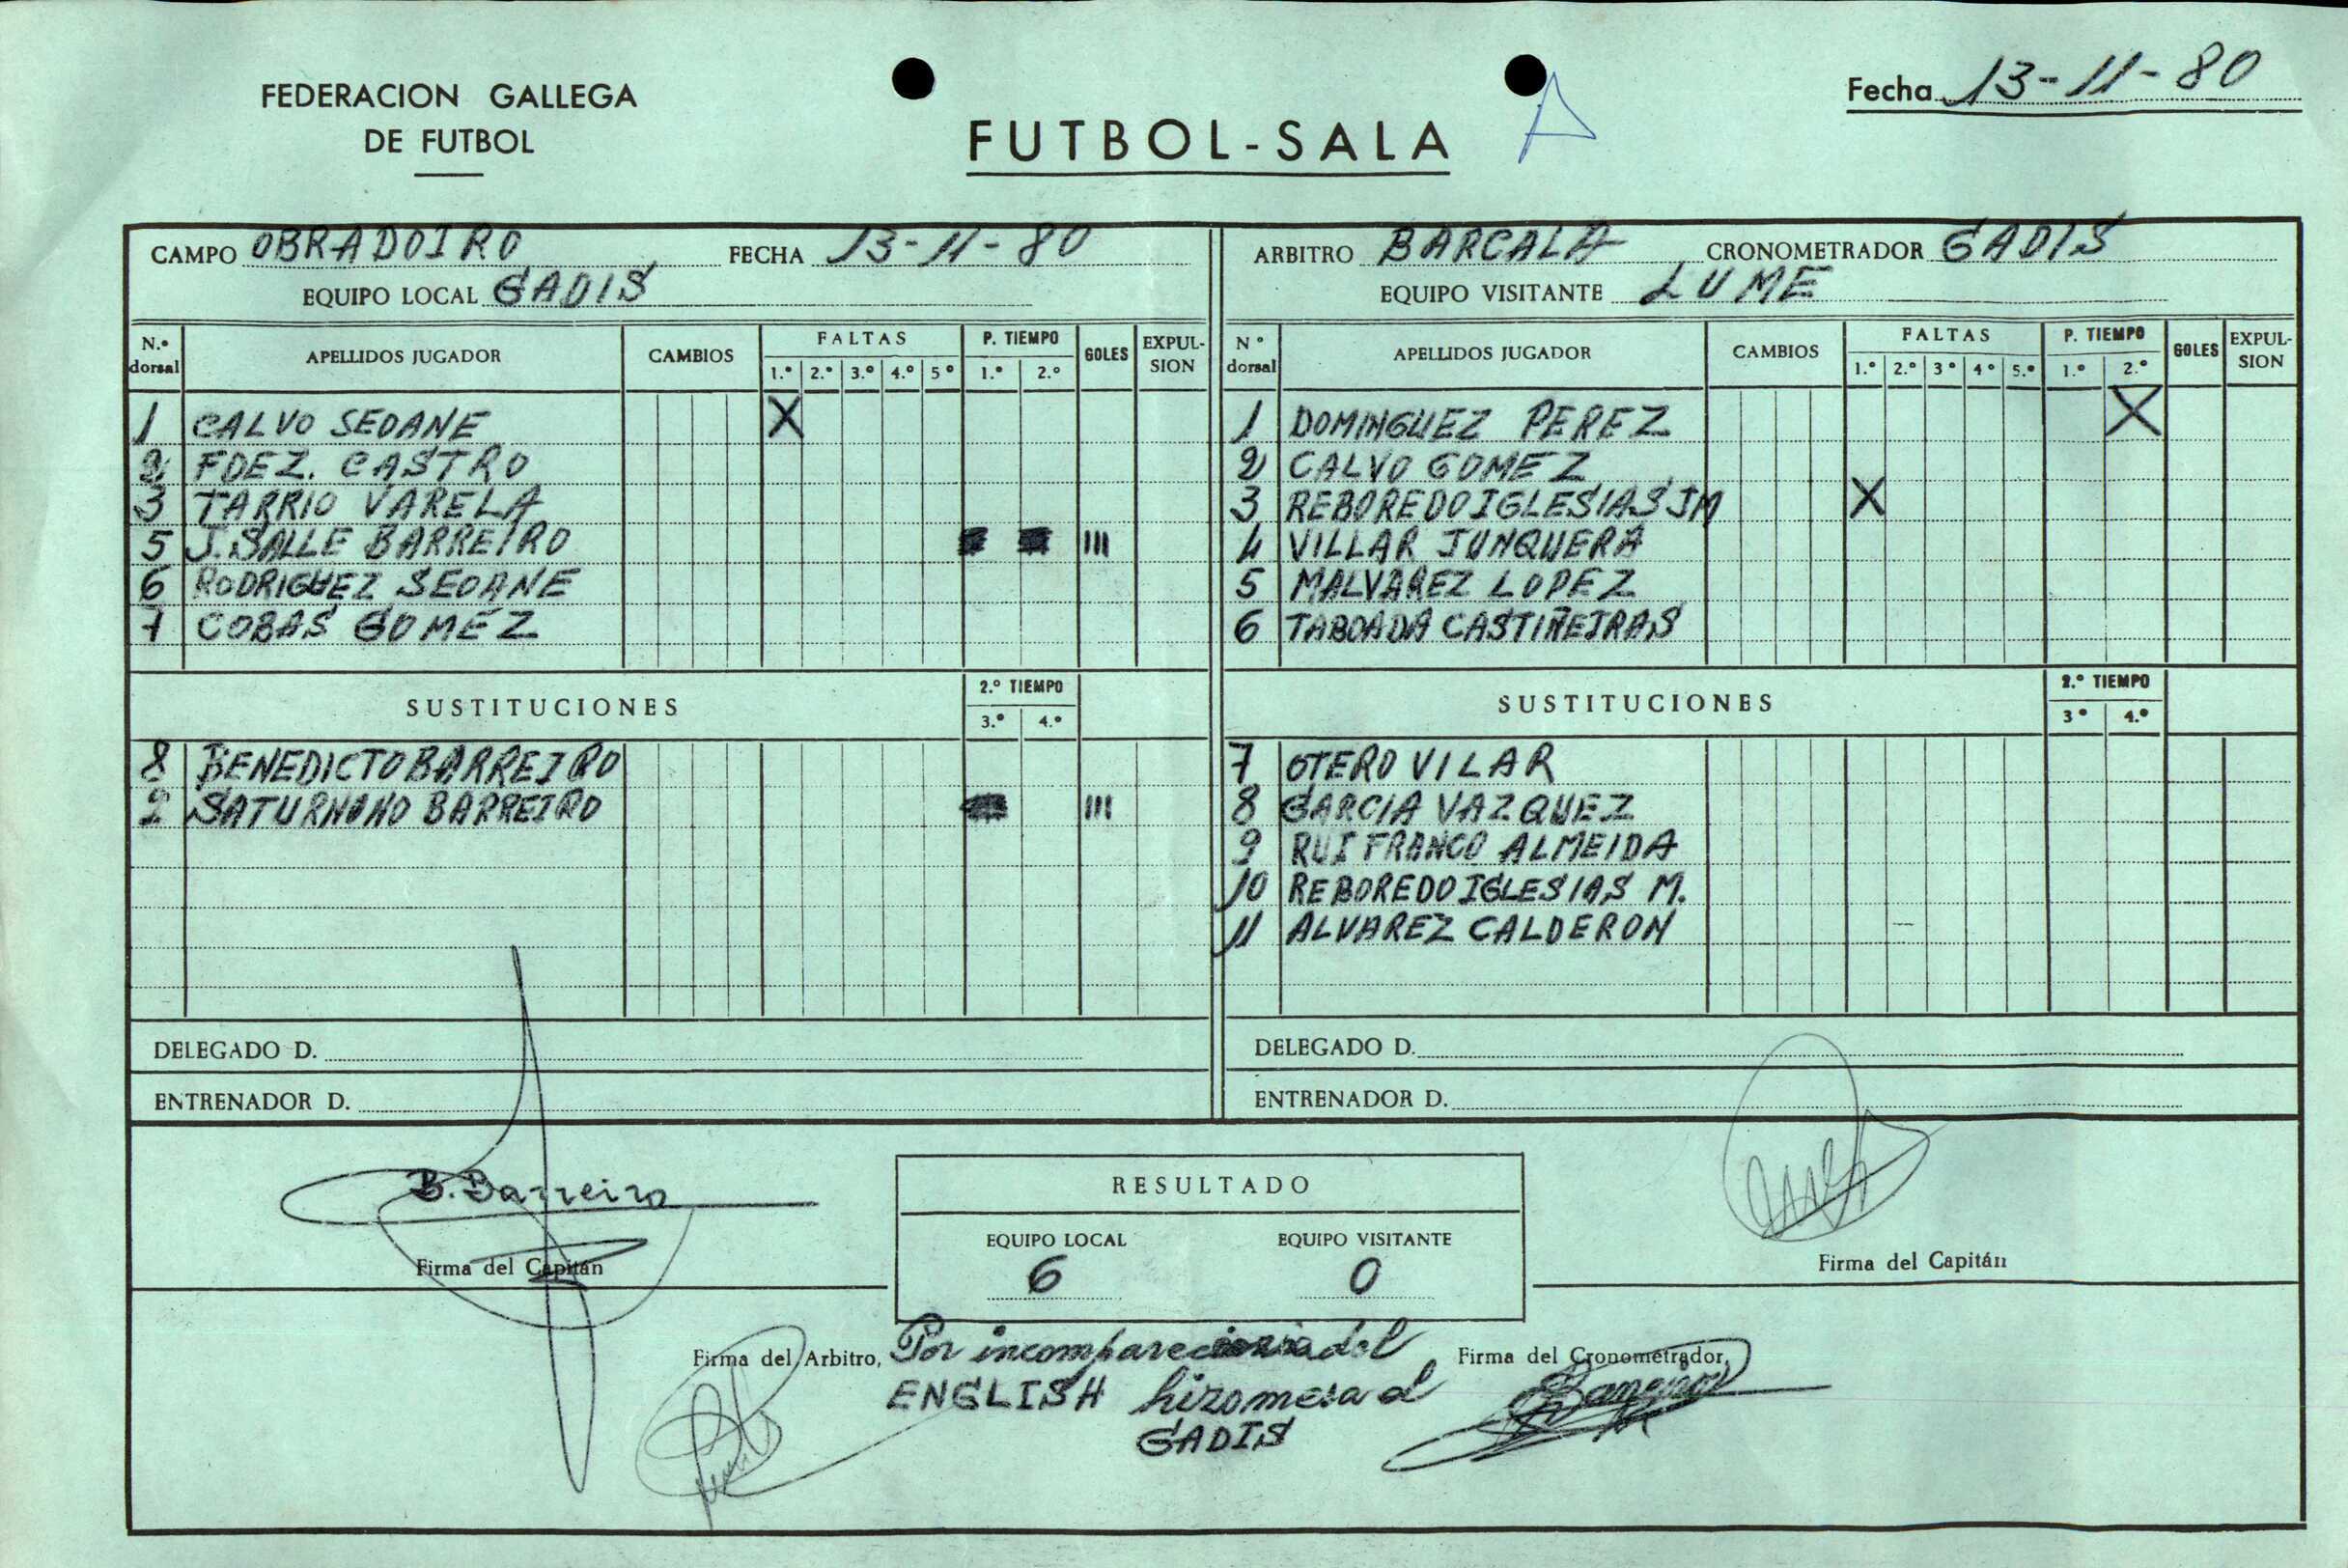 FEDERACION GALLEGA
DE FUTBOL
FUTBOL-SALA
A
Fecha 13-11-80
CAMPO OBRADOIRO FECHA 13-11-80
EQUIPO LOCAL GADIS
N.º dorsal APELLIDOS JUGADOR CAMBIOS FALTAS 1.º 2.º 3.º 4.º 5º P. TIEMPO 1.º 2.º GOLES EXPUL-SION
1 CALVO SEOANE X
2 FDEZ. CASTRO
3 TARRIO VARELA
5 J. SALLE BARREIRO III
6 RODRIGUEZ SEOANE
7 COBAS GOMEZ
SUSTITUCIONES 2.º TIEMPO 3.º 4.º
8 BENEDICTO BARREIRO
2 BARREIRO III
DELEGADO D.
ENTRENADOR D.
ARBITRO BARCALA CRONOMETRADOR GADIS
EQUIPO VISITANTE LUME
Nº dorsal APELLIDOS JUGADOR CAMBIOS FALTAS 1.º 2.º 3º 4º 5.º P. TIEMPO 1.º 2.º GOLES EXPUL-SION
1 DOMINGUEZ PEREZ X
2 CALVO GOMEZ
3 REBOREDO IGLESIAS JM X
4 VILLAR JUNQUERA
5 MALVAREZ LOPEZ
6 TABOADA CASTIÑEIRAS
SUSTITUCIONES 2.º TIEMPO 3º 4.º
7 OTERO VILAR
8 GARCIA VAZQUEZ
9 RUI FRANCO ALMEIDA
10 REBOREDO IGLESIAS M.
11 ALVAREZ CALDERON
DELEGADO D.
ENTRENADOR D.
B. Barreiro
Firma del Capitán
RESULTADO
EQUIPO LOCAL EQUIPO VISITANTE
6 0
Firma del Capitán
Firma del Arbitro,
Por incomparecencia del
ENGLISH hizo mesa el
GADIS
Firma del Cronometrador,